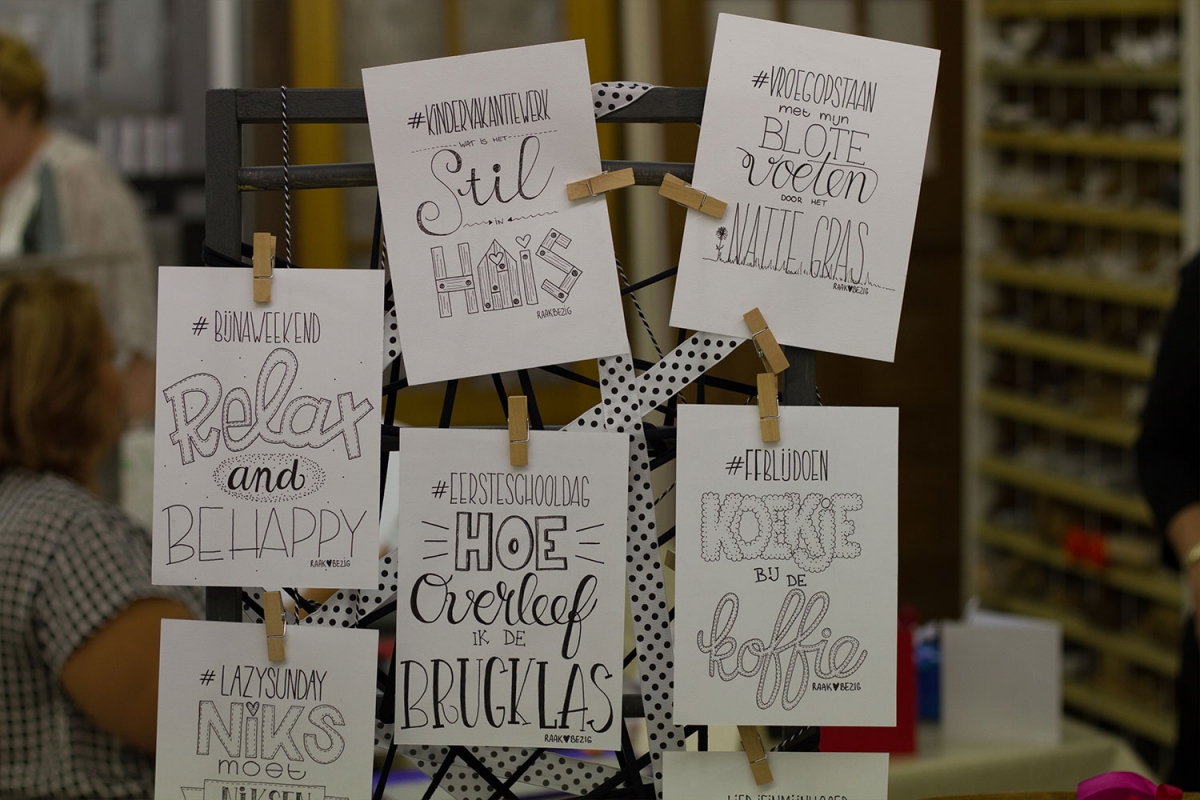 #KINDERVAKANTIEWERK
WAT IS HET
Stil
IN
HUIS
RAAK♥BEZIG
#VROEGOPSTAAN
met mijn
BLOTE
voeten
DOOR HET
NATTE GRAS
RAAK♥BEZIG
#BIJNAWEEKEND
Relax
and
BE HAPPY
RAAK♥BEZIG
#EERSTESCHOOLDAG
HOE
Overleef
IK DE
BRUGKLAS
RAAK♥BEZIG
#FFBLIJDOEN
KOEKJE
BIJ DE
koffie
RAAK♥BEZIG
#LAZYSUNDAY
NIKS
moet
NIKSEN